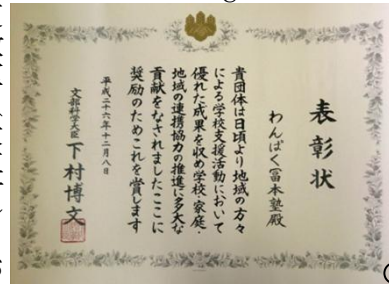 表彰状
わんぱく冨本塾殿
貴団体は日頃より地域の方々
による学校支援活動において
優れた成果を収め学校・家庭・
地域の連携協力の推進に多大な
貢献をなされましたここに
奨励のためこれを賞します
平成二十六年十二月八日
文部科学大臣 下村博文